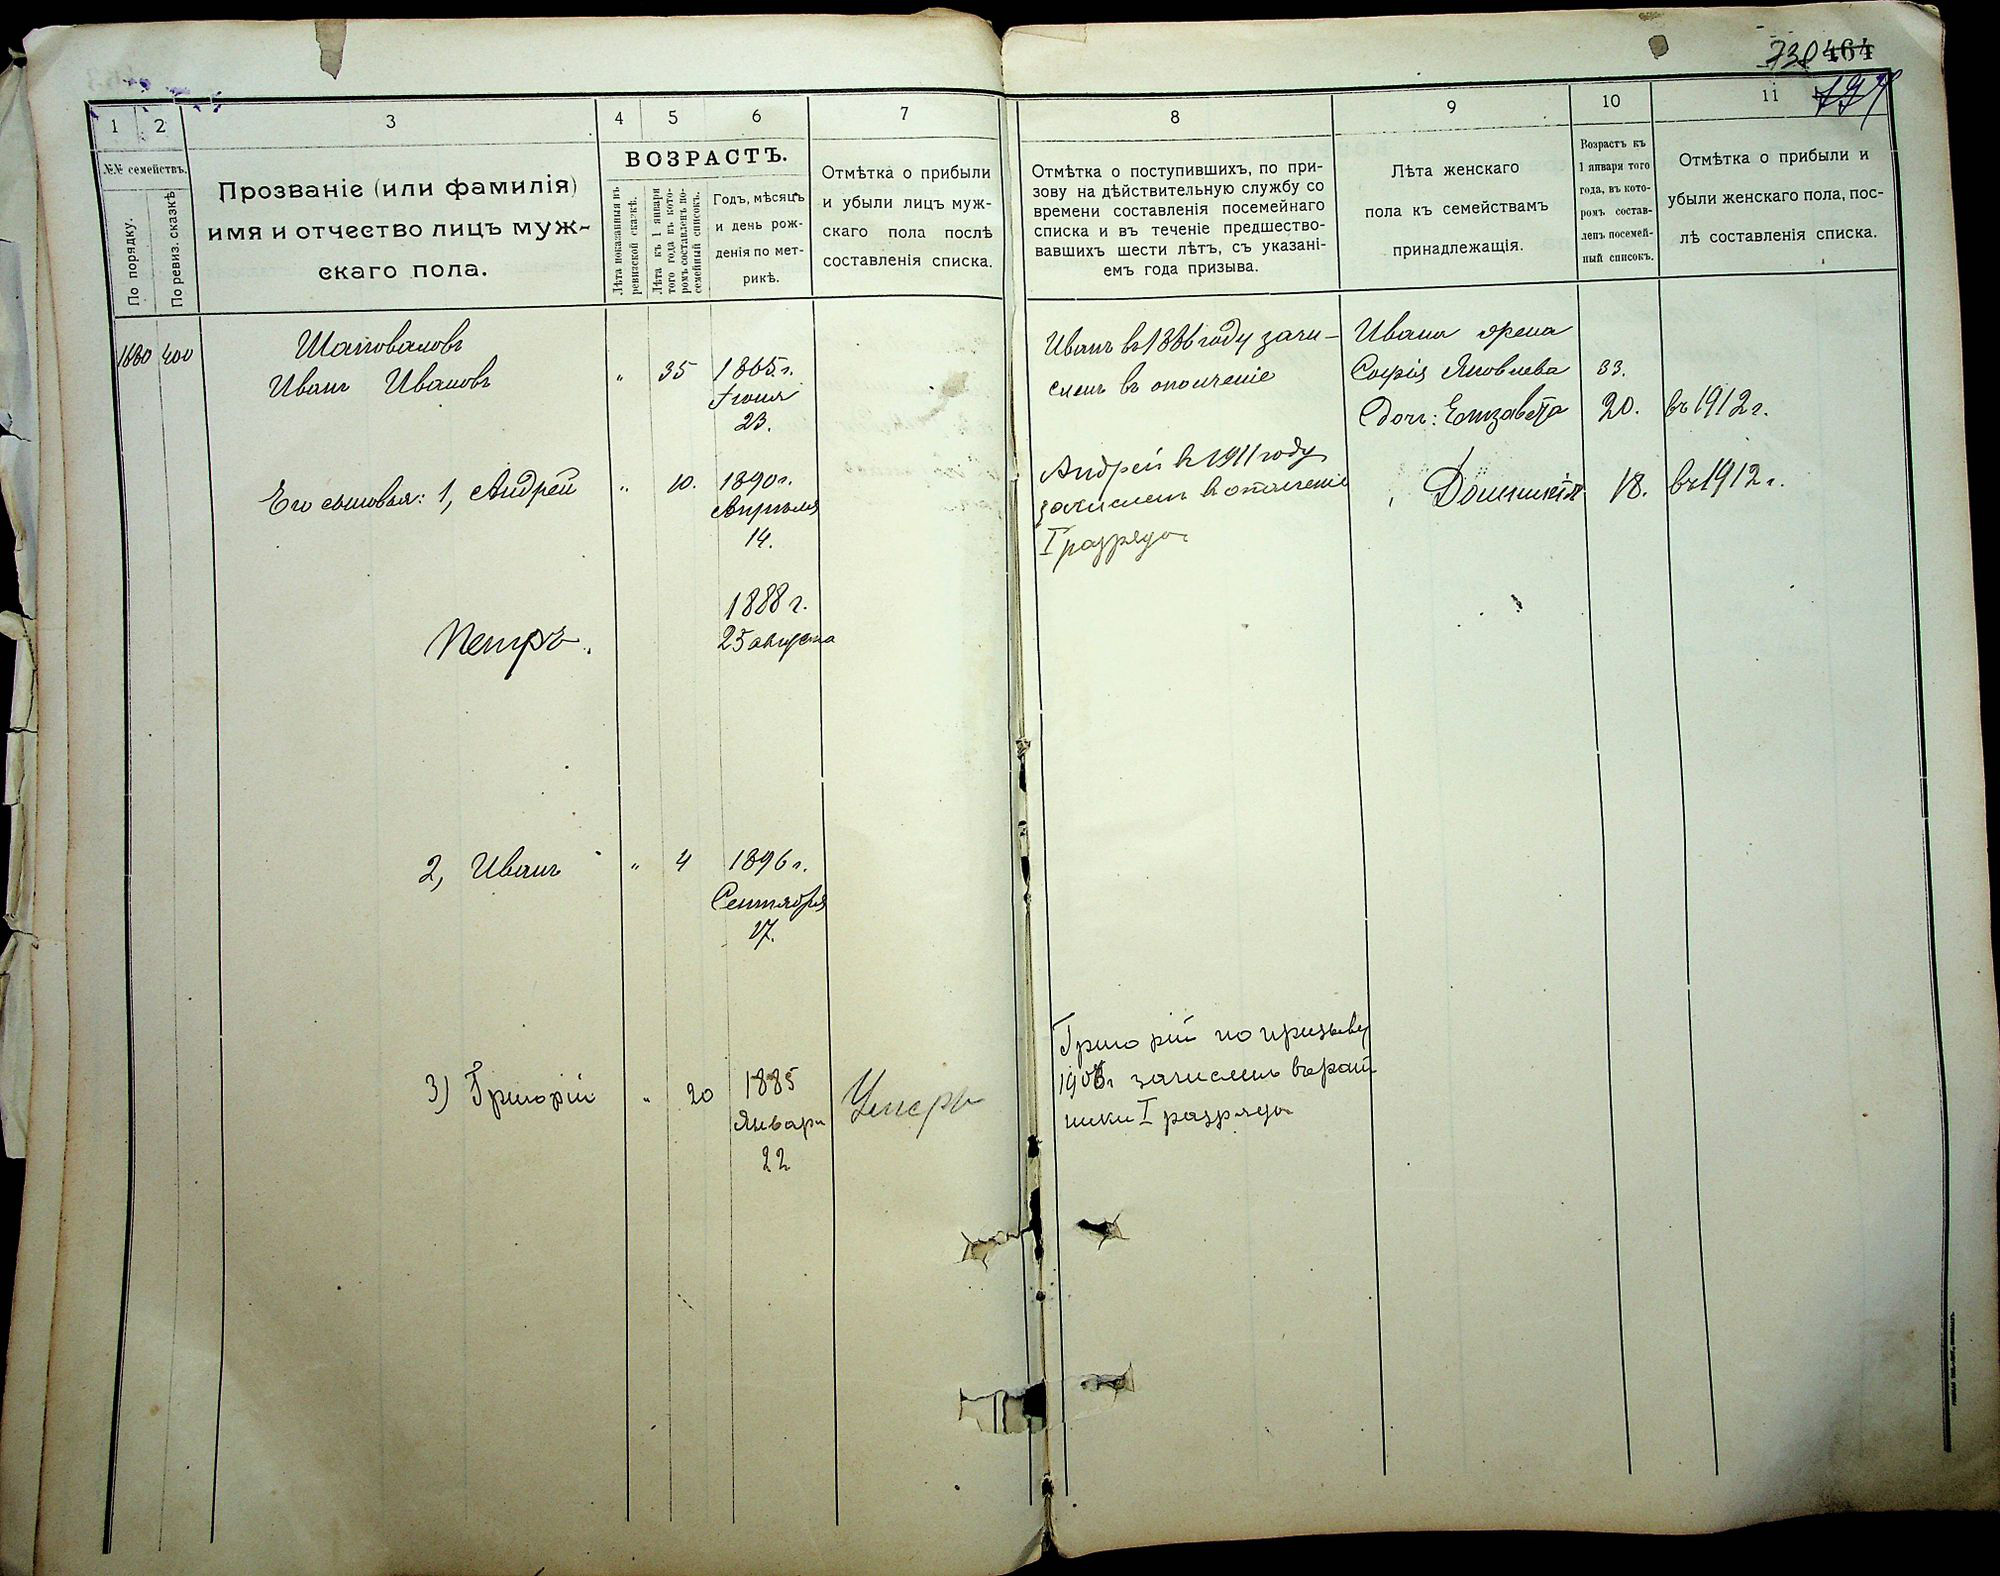 738 464
1 2 3 4 5 6 7 8 9 10 11
№№ семействъ.
По порядку.
По ревиз. сказкѣ
Прозваніе (или фамилія)
имя и отчество лицъ муж-
скаго пола.
ВОЗРАСТЪ.
Лѣта показанныя въ
ревизской сказкѣ.
Лѣта къ 1 января
того года къ кото-
ромъ составленъ по-
семейный списокъ.
Годъ, мѣсяцъ
и день рож-
денія по мет-
рикѣ.
Отмѣтка о прибыли
и убыли лицъ муж-
скаго пола послѣ
составленія списка.
Отмѣтка о поступившихъ, по при-
зову на дѣйствительную службу со
времени составленія посемейнаго
списка и въ теченіе предшество-
вавшихъ шести лѣтъ, съ указані-
емъ года призыва.
Лѣта женскаго
пола къ семействамъ
принадлежащія.
Возрастъ къ
1 января того
года, въ кото-
ромъ состав-
ленъ посемей-
ный списокъ.
Отмѣтка о прибыли и
убыли женскаго пола, пос-
лѣ составленія списка.
1680 400
Шаповаловъ
Иванъ Ивановъ „ 35 1865 г.
Іюня
23.
Иванъ въ 1886 году зачи-
сленъ въ ополченіе
Ивана жена
Софія Яковлева 33.
Дочь: Елизавета 20. въ 1912 г.
Его сыновья: 1, Андрей „ 10. 1890 г.
Апрѣля
14.
Андрей въ 1911 году
зачисленъ въ ополченіе
I разряда
„ 18. въ 1912 г.
Петръ.
1888 г.
25 августа
2, Иванъ „ 4 1896 г.
Сентября
17.
3) Григорій „ 20 1885
Января
22
Умеръ
Григорій по призыву
190 г зачисленъ въ рат
ники I разряда